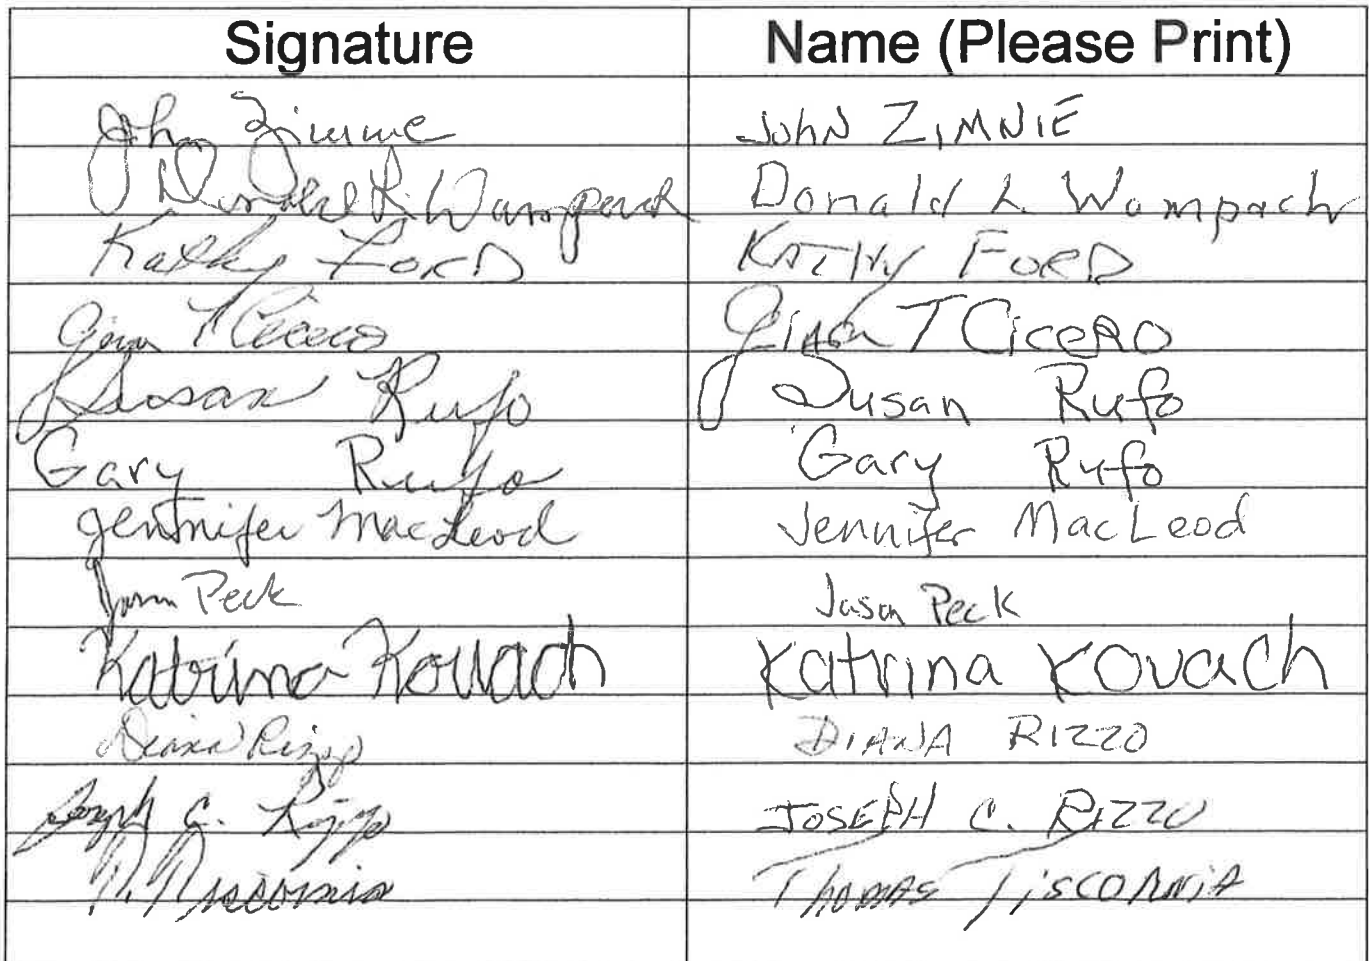 Signature Name (Please Print)
John Zimnie John ZIMNIE
Donald L. Wampach Donald L Wampach
Kathy FORD KATHY FORD
Gina T Cicero Gina T CiceRO
Susan Rufo Susan Rufo
Gary Rufo Gary Rufo
Jennifer MacLeod Jennifer MacLeod
Jason Peck Jason Peck
Katrina Kovach Katrina Kovach
Diana Rizzo DIANA RIZZO
Joseph C. Rizzo JOSEPH C. RIZZO
T. Tiscornia Thomas TiscorniA